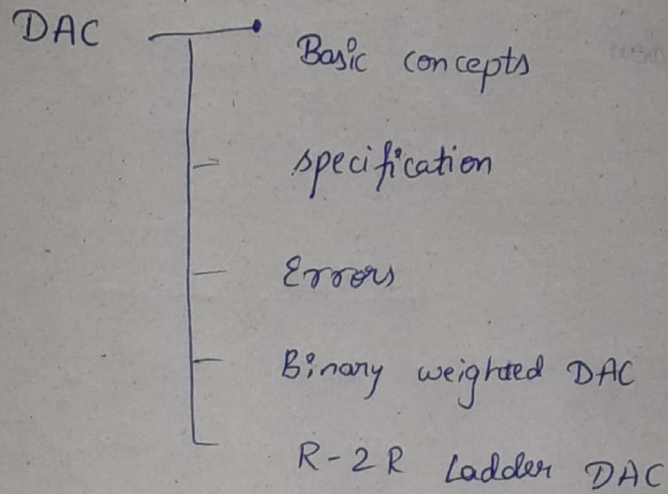 DAC
Basic concepts
specification
Errors
Binary weighted DAC
R-2R Ladder DAC